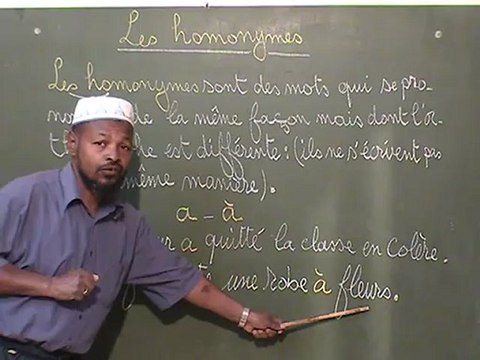 Les homonymes
Les homonymes sont des mots qui se pro-
la même façon mais dont l'or-
est différente : (ils ne s'écrivent pas
même manière).
a - à
a quitté la classe en colère.
une robe à fleurs.